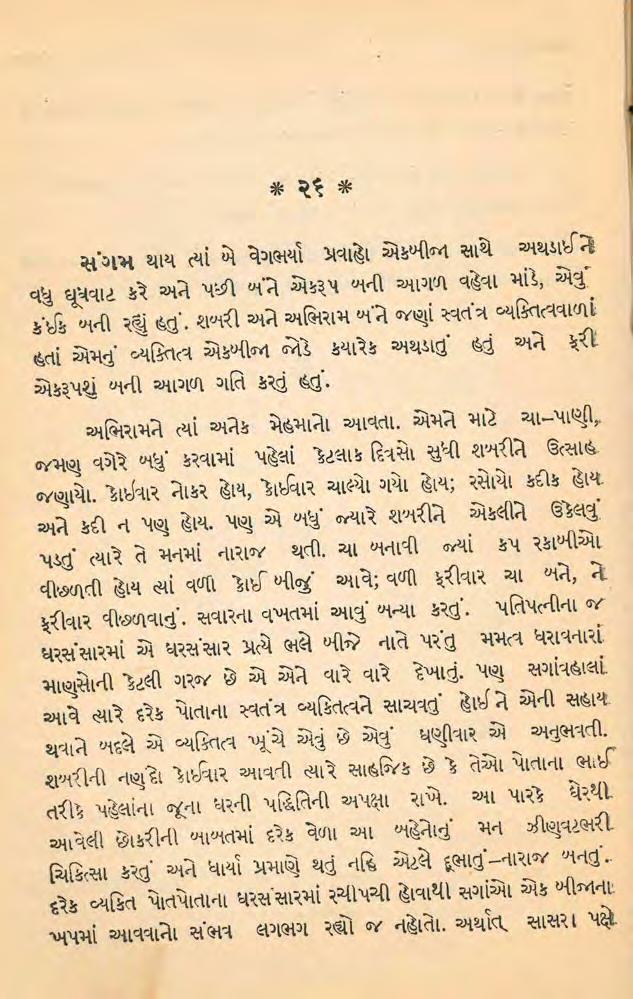 * ૨૬ *
સંગમ થાય ત્યાં બે વેગભર્યા પ્રવાહો એકબીજા સાથે અથડાઈ ને
વધુ ઘૂઘવાટ કરે અને પછી બંને એકરૂપ બની આગળ વહેવા માંડે, એવું
કંઈક બની રહ્યું હતું. શબરી અને અભિરામ બંને જણાં સ્વતંત્ર વ્યક્તિત્વવાળાં
હતાં એમનું વ્યક્તિત્વ એકબીજા જોડે કયારેક અથડાતું હતું અને ફરી
એકરૂપશું બની આગળ ગતિ કરતું હતું.
અભિરામને ત્યાં અનેક મેહમાનો આવતા. એમને માટે ચા–પાણી,
જમણ વગેરે બધું કરવામાં પહેલાં કેટલાક દિવસો સુધી શબરીને ઉત્સાહ
જણાયો. કોઈવાર નોકર હોય, કોઈવાર ચાલ્યો ગયો હોય; રસોયો કદીક હોય
અને કદી ન પણ હોય. પણ એ બધું જ્યારે શબરીને એકલીને ઉકેલવું
પડતું ત્યારે તે મનમાં નારાજ થતી. ચા બનાવી જ્યાં કપ રકાબીઓ
વીછળતી હોય ત્યાં વળી કોઈ બીજું આવે; વળી ફરીવાર ચા બને, ને
ફરીવાર વીછળવાનું. સવારના વખતમાં આવું બન્યા કરતું. પતિપત્નીના જ
ઘરસંસારમાં એ ઘરસંસાર પ્રત્યે ભલે બીજે નાતે પરંતુ મમત્વ ધરાવનારાં
માણસોની કેટલી ગરજ છે એ એને વારે વારે દેખાતું. પણ સગાંવહાલાં
આવે ત્યારે દરેક પોતાના સ્વતંત્ર વ્યકિતત્વને સાચવતું હોઈ ને એની સહાય
થવાને બદલે એ વ્યકિતત્વ ખૂંચે એવું છે એવું ઘણીવાર એ અનુભવતી.
શબરીની નણદો કોઈવાર આવતી ત્યારે સાહજિક છે કે તેઓ પોતાના ભાઈ
તરીકે પહેલાંના જૂના ઘરની પદ્ધિતિની અપક્ષા રાખે. આ પારકે ઘેરથી
આવેલી છોકરીની બાબતમાં દરેક વેળા આ બહેનોનું મન ઝીણવટભરી
ચિકિત્સા કરતું અને ધાર્યા પ્રમાણે થતું નહિ એટલે દૂભાતું–નારાજ બનતું.
દરેક વ્યકિત પોતપોતાના ઘરસંસારમાં રચીપચી હોવાથી સગાંઓ એક બીજાના
ખપમાં આવવાનો સંભવ લગભગ રહ્યો જ નહોતો. અર્થાત્ સાસરા પક્ષે